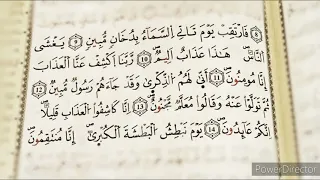 فَارْتَقِبْ يَوْمَ تَأْتِي السَّمَاءُ بِدُخَانٍ مُبِينٍ ۝ يَغْشَى
النَّاسَ هَٰذَا عَذَابٌ أَلِيمٌ ۝ رَبَّنَا اكْشِفْ عَنَّا الْعَذَابَ
إِنَّا مُؤْمِنُونَ ۝ أَنَّىٰ لَهُمُ الذِّكْرَىٰ وَقَدْ جَاءَهُمْ رَسُولٌ مُبِينٌ ۝
ثُمَّ تَوَلَّوْا عَنْهُ وَقَالُوا مُعَلَّمٌ مَجْنُونٌ ۝ إِنَّا كَاشِفُوا الْعَذَابِ قَلِيلًا
إِنَّكُمْ عَائِدُونَ ۝ يَوْمَ نَبْطِشُ الْبَطْشَةَ الْكُبْرَىٰ إِنَّا مُنْتَقِمُونَ
PowerDirector